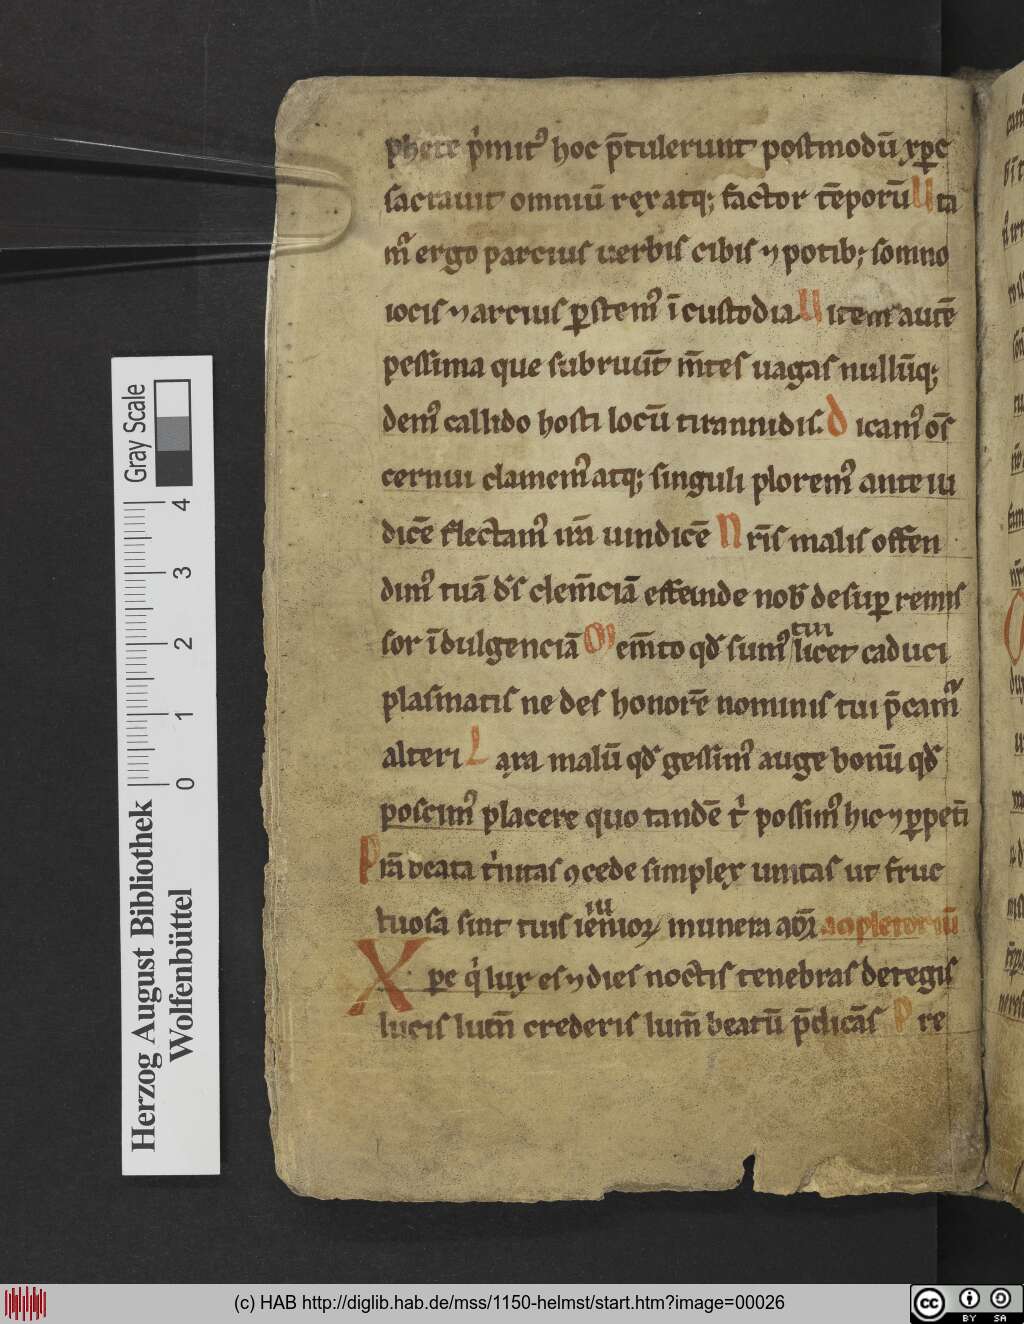 phete p̍mit᷒ hoc p̄tulerunt postmodū xp̄c
sacrauit omniū rex atq; factor tēporū U ta
m᷒ ergo parcius uerbis cibis ⁊ potib; somno
iocis ⁊ arcius ꝑstem᷒ ī custodia U item autē
pessima que subruūt m̄tes uagas nullūq;
dem᷒ callido hosti locū tirannidis. D icam᷒ om̄s
cernui clamem᷒ atq; singuli plorem᷒ ante iu
dicē flectam᷒ irā uindicē N r̄is malis offen
dim᷒ tuā ds̄ clem̄ciā effunde nob̄ desuꝑ remis
sor īdulgenciā M em̄to qd̄ sum᷒ tui licet caduci
plasmatis ne des honorē nominis tui p̄cam᷒
alteri L axa malū qd̄ gessim᷒ auge bonū qd̄
poscim᷒ placere quo tandē t̍ possim᷒ hic ⁊ ꝑpeti
P r̄a beata t̍nitas ꝯcede simplex unitas ut fruc
tuosa sint tuis ieiunioꝝ munera am̄ ad c̄pletoriū
X pc q̍ lux es ⁊ dies noctis tenebras detegis
lucis lum̄ crederis lum̄ beatū p̄dicās P re
Gray Scale
4 3 2 1 0
Herzog August Bibliothek
Wolfenbüttel
(c) HAB http://diglib.hab.de/mss/1150-helmst/start.htm?image=00026
cc BY SA